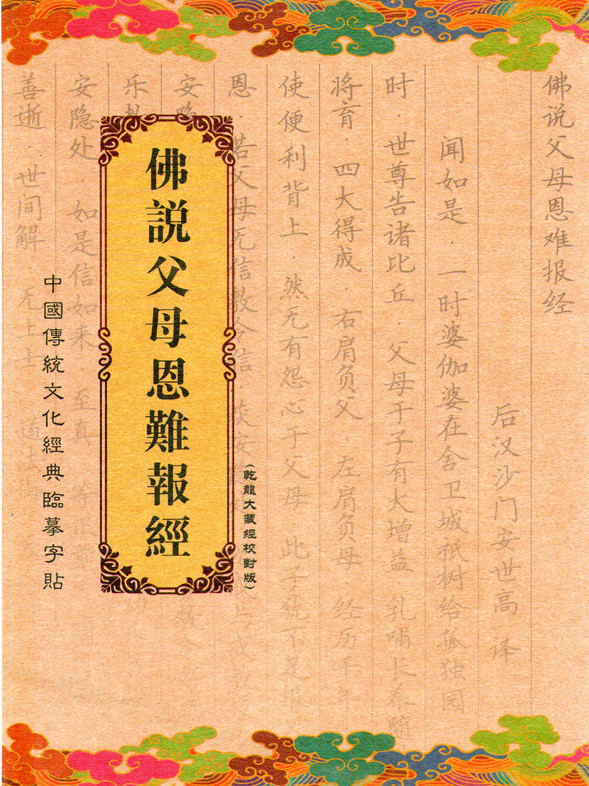 佛说父母恩难报经
后汉沙门安世高 译
闻如是．一时婆伽婆在舍卫城祇树给孤独园
时．世尊告诸比丘．父母于子有大增益 乳哺长养随
将育．四大得成．右肩负父．左肩负母 经历千年
使便利背上．然无有怨心于父母 此子犹不足报
恩．若父母无信教令信．获安
安隐
乐
安隐处 如是信如来．至真
善逝．世间解．无上士
佛説父母恩難報經
(乾龍大藏經校對版)
中國傳統文化經典臨摹字貼